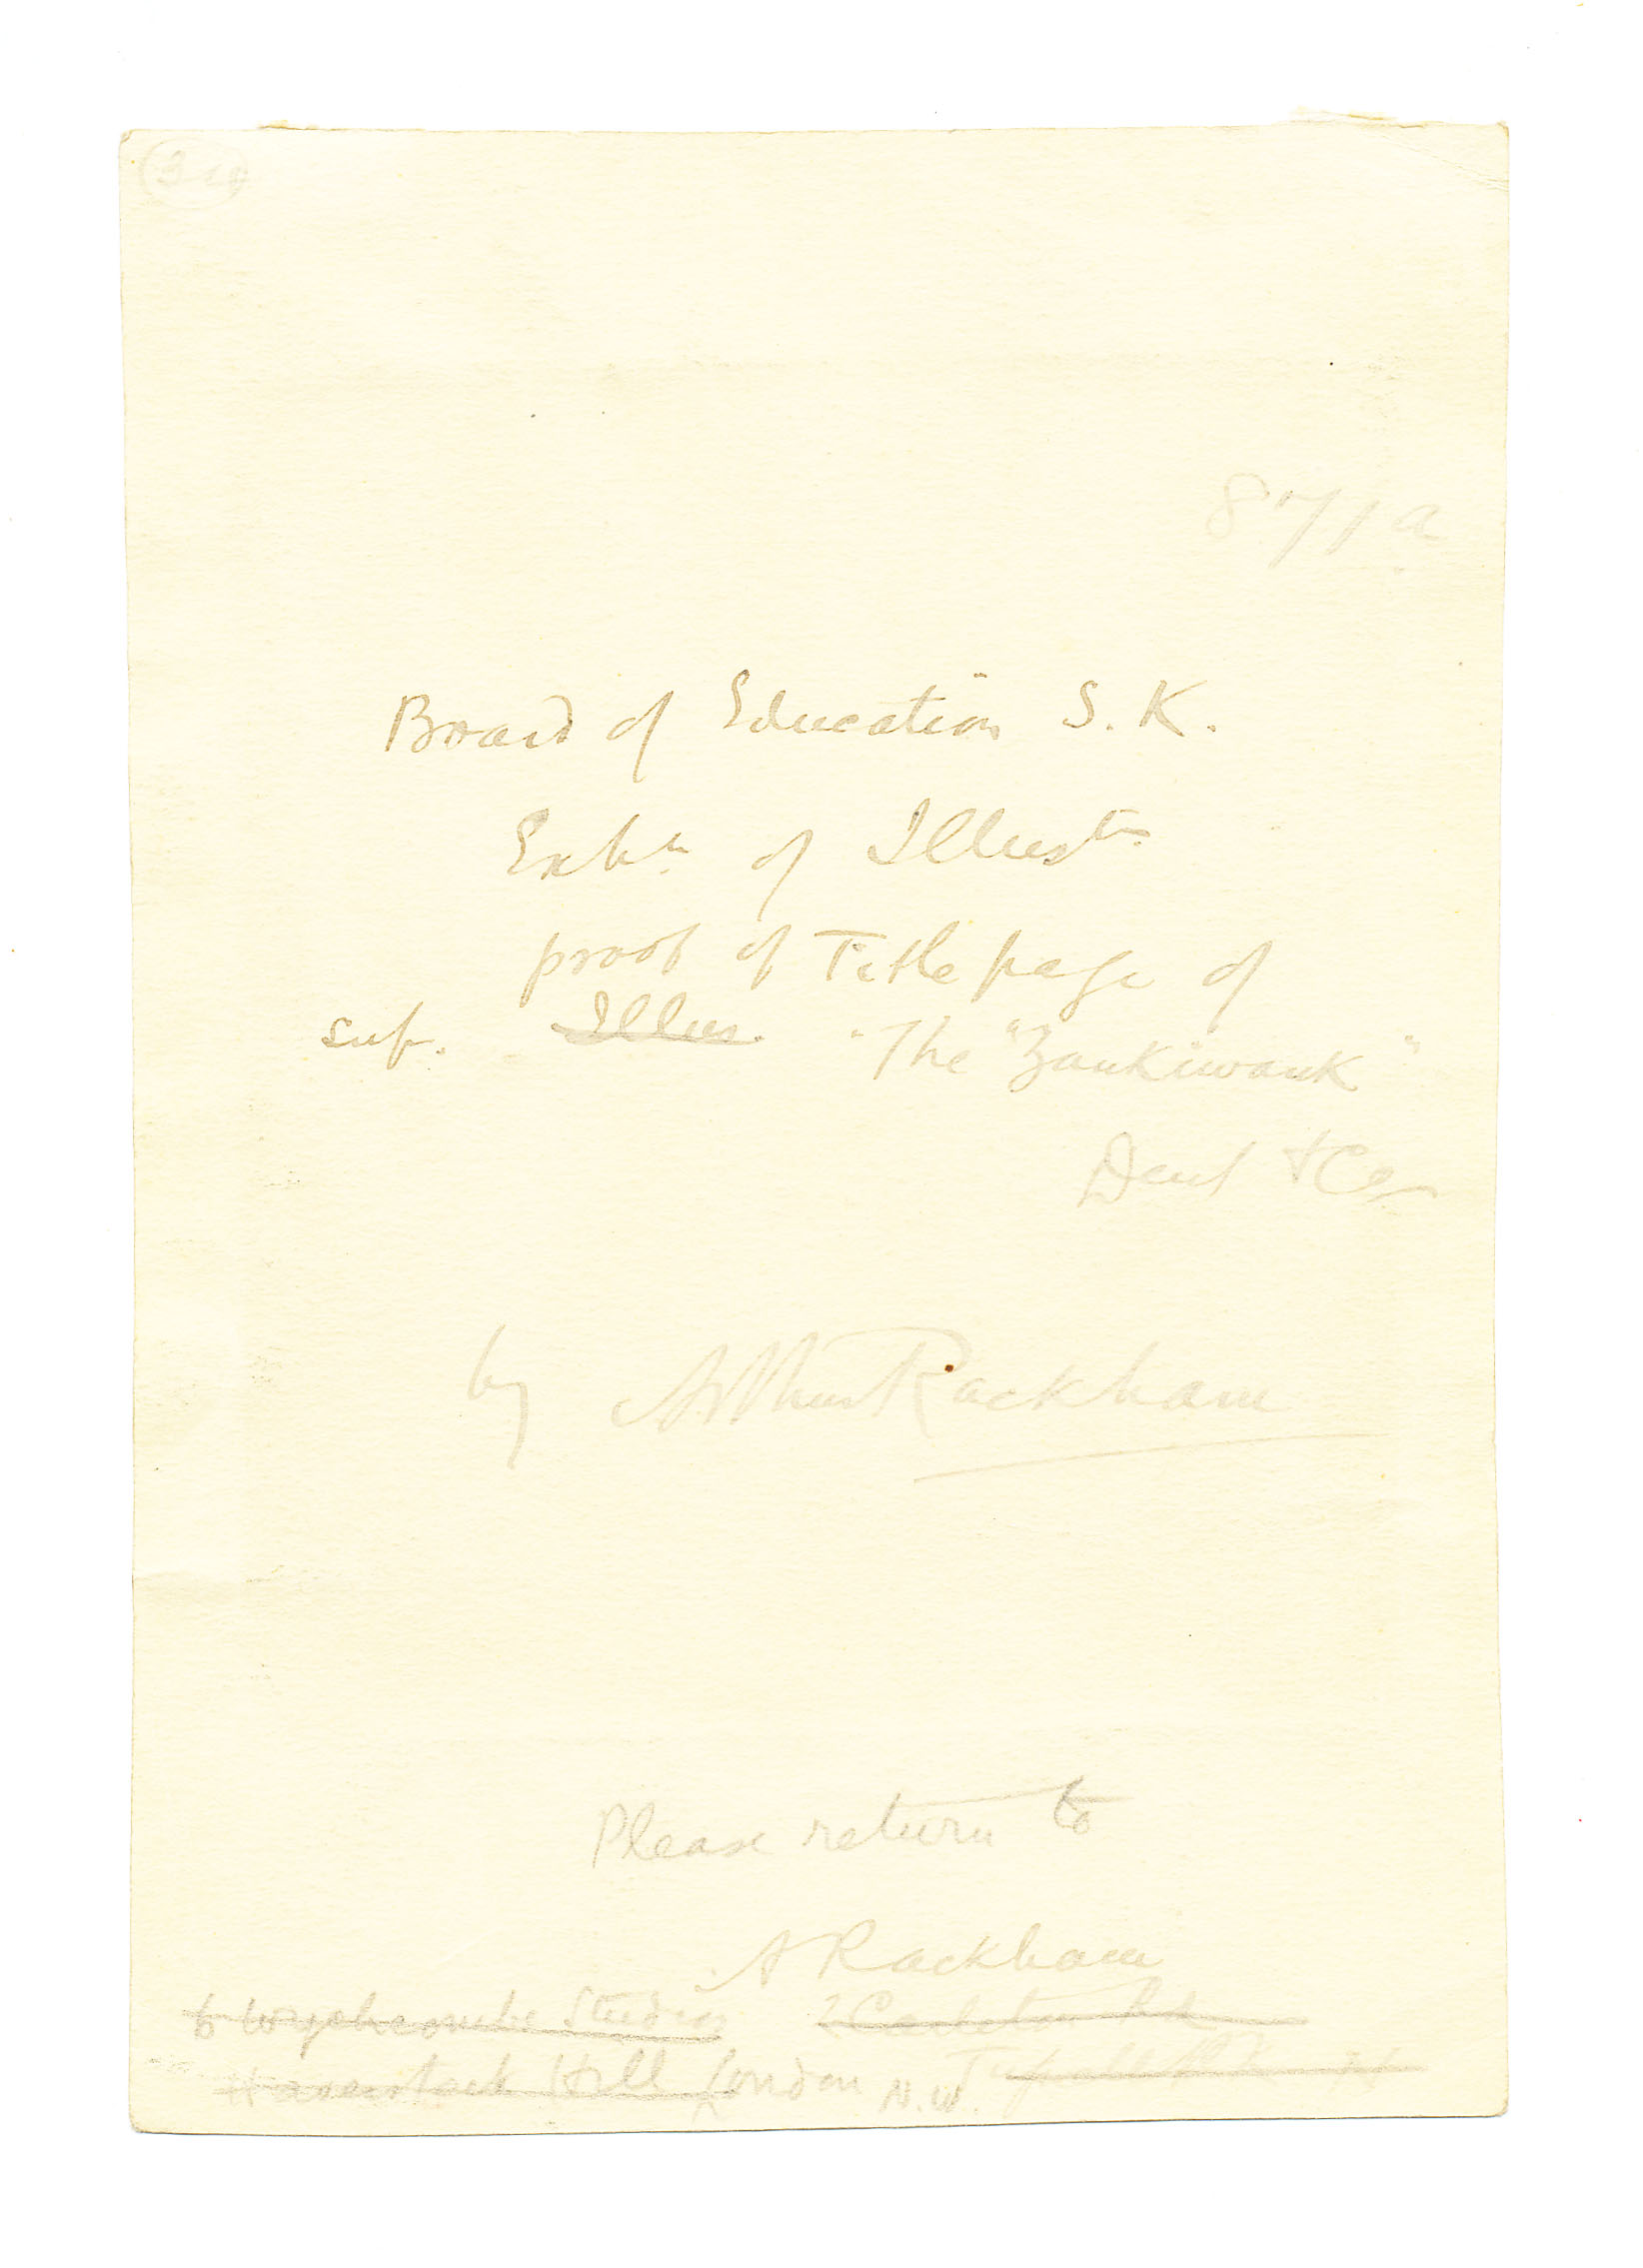 871a
Board of Education S.K.
Exbn. of Illustns.
proof of Title page of
sub. Illus. "The "Zankiwank"
Dent & Co.
by Arthur Rackham
Please return to
A Rackham
6 Wychcombe Studios 2 Carleton Rd
Haverstock Hill London N.W. Tufnell Pk